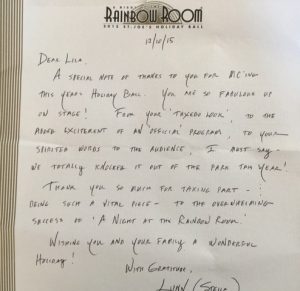 A NIGHT AT THE
RAINBOW ROOM
2015 ST. JOE'S HOLIDAY BALL
12/10/15
DEAR LILA,
A SPECIAL NOTE OF THANKS TO YOU FOR MC'ING
THIS YEARS HOLIDAY BALL. YOU ARE SO FABULOUS UP
ON STAGE! FROM YOUR 'TUXEDO LOOK', TO THE
ADDED EXCITEMENT OF AN OFFICIAL PROGRAM, TO YOUR
SPIRITED WORDS TO THE AUDIENCE, I MUST SAY -
WE TOTALLY KNOCKED IT OUT OF THE PARK THIS YEAR!
THANK YOU SO MUCH FOR TAKING PART -
BEING SUCH A VITAL PIECE - TO THE OVERWHELMING
SUCCESS OF 'A NIGHT AT THE RAINBOW ROOM.'
WISHING YOU AND YOUR FAMILY A WONDERFUL
HOLIDAY!
WITH GRATITUDE,
LYNN